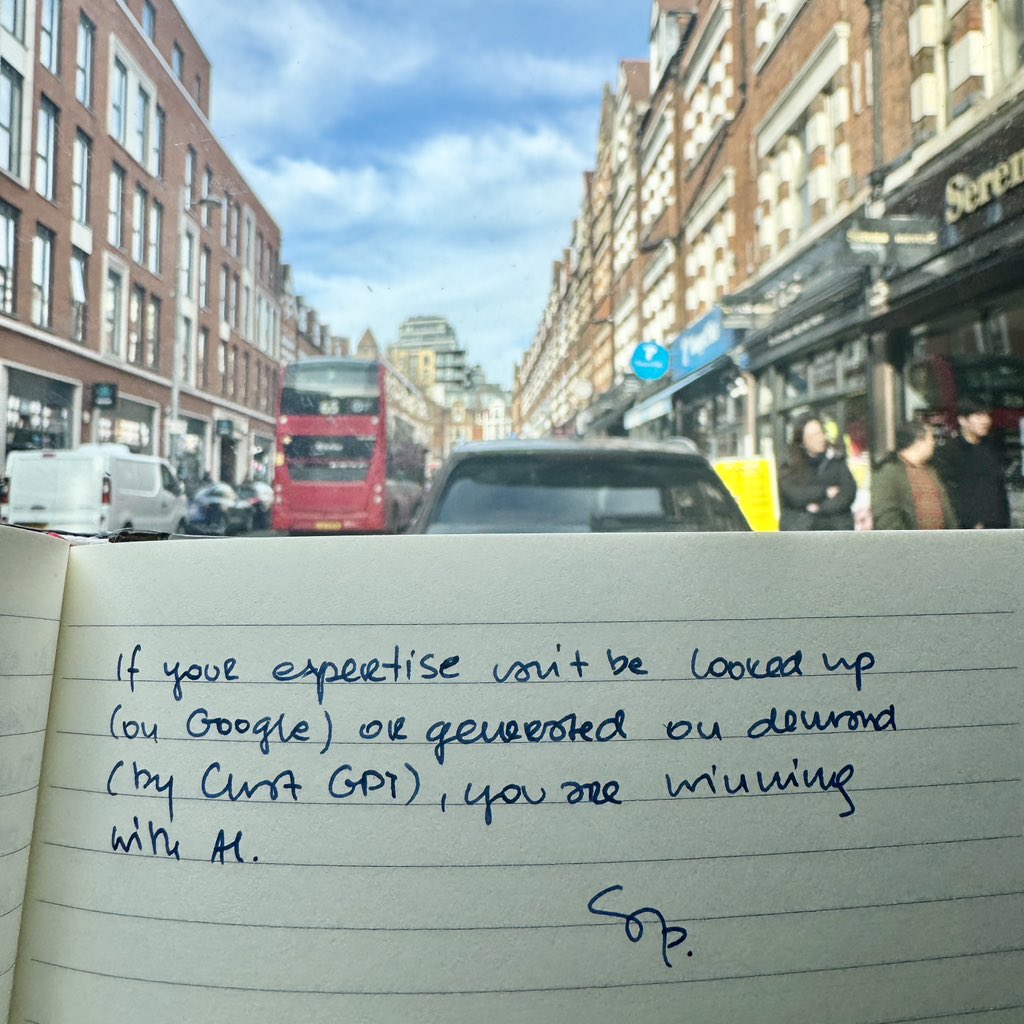 65
Seren
If your expertise can't be looked up
(on Google) or generated on demand
(by Chat GPT), you are winning
with AI.
Sp.